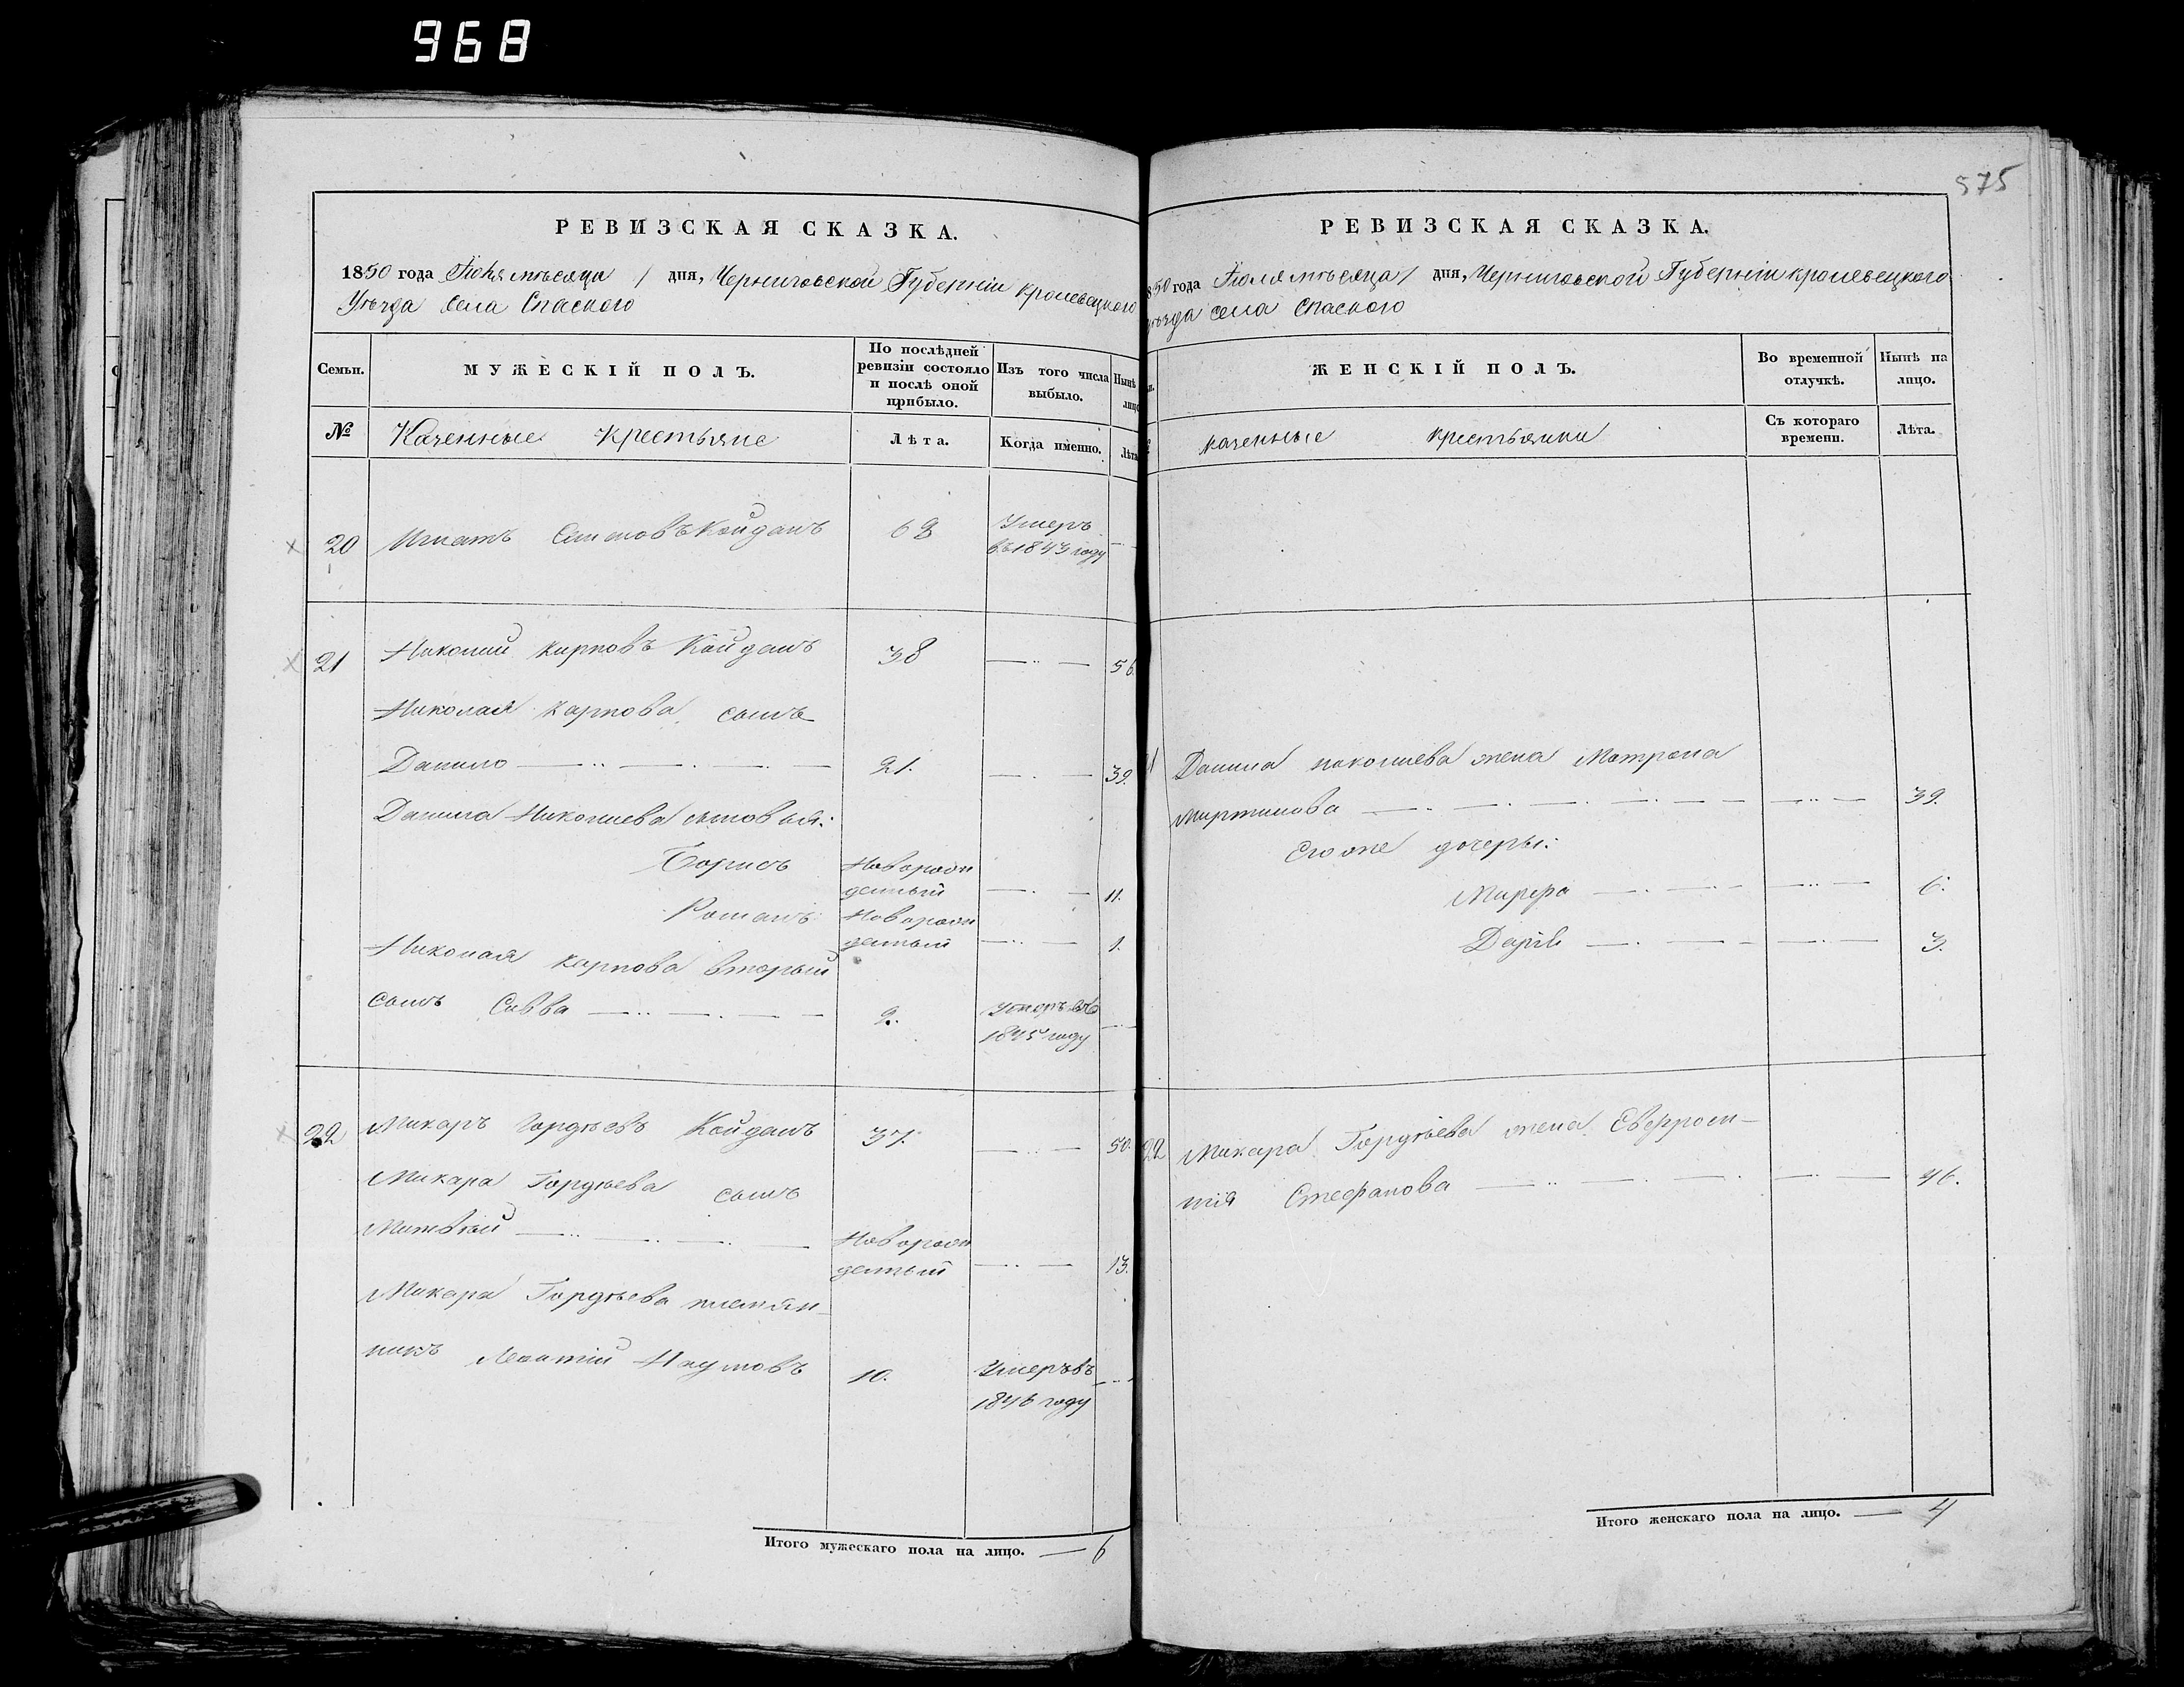 968
РЕВИЗСКАЯ СКАЗКА.
1850 года Іюля мѣсяца 1 дня, Черниговской Губерніи Кролевецкого
Уѣзда села Спаского
Семьи.
МУЖЕСКІЙ ПОЛЪ.
По послѣдней ревизіи состояло и послѣ оной прибыло.
Изъ того числа выбыло.
Нынѣ
лицо
№
Казенные Крестьяне
Лѣта.
Когда именно.
Лѣта
20 Игнатъ Кайданъ 62 Умеръ
въ 1843 году
21 Николай Карповъ Кайданъ 38 56
Николая Карпова сынъ
Данило 21. 39.
Данила Николаева сыновья:
Борисъ Новорож
денный 11.
Романъ Новорож
денный 1.
Николая Карпова вторый
сынъ Савва 2. Умеръ въ
1845 году
22 Макаръ Гордѣевъ Кайданъ 37. 50.
Макара Гордѣева сынъ
Матвѣй Новорож
денный 13.
Макара Гордѣева племян-
никъ Леонтій Наумовъ 10. Умеръ въ
1846 году
Итого мужескаго пола на лицо. 6
575
РЕВИЗСКАЯ СКАЗКА.
850 года Іюля мѣсяца 1 дня, Черниговской Губерніи Кролевецкого
уѣзда села Спаского
ЖЕНСКІЙ ПОЛЪ.
Во временной отлучкѣ.
Нынѣ на лицо.
казенные крестьянки
Съ котораго времени.
Лѣта.
Данила николаева жена Матрона
Мартинова 39.
Его же дочеры:
Марфа 6.
Дарія 3.
22 Макара Гордѣева жена Евфросі-
нія Стефанова 46.
Итого женскаго пола на лицо. 4